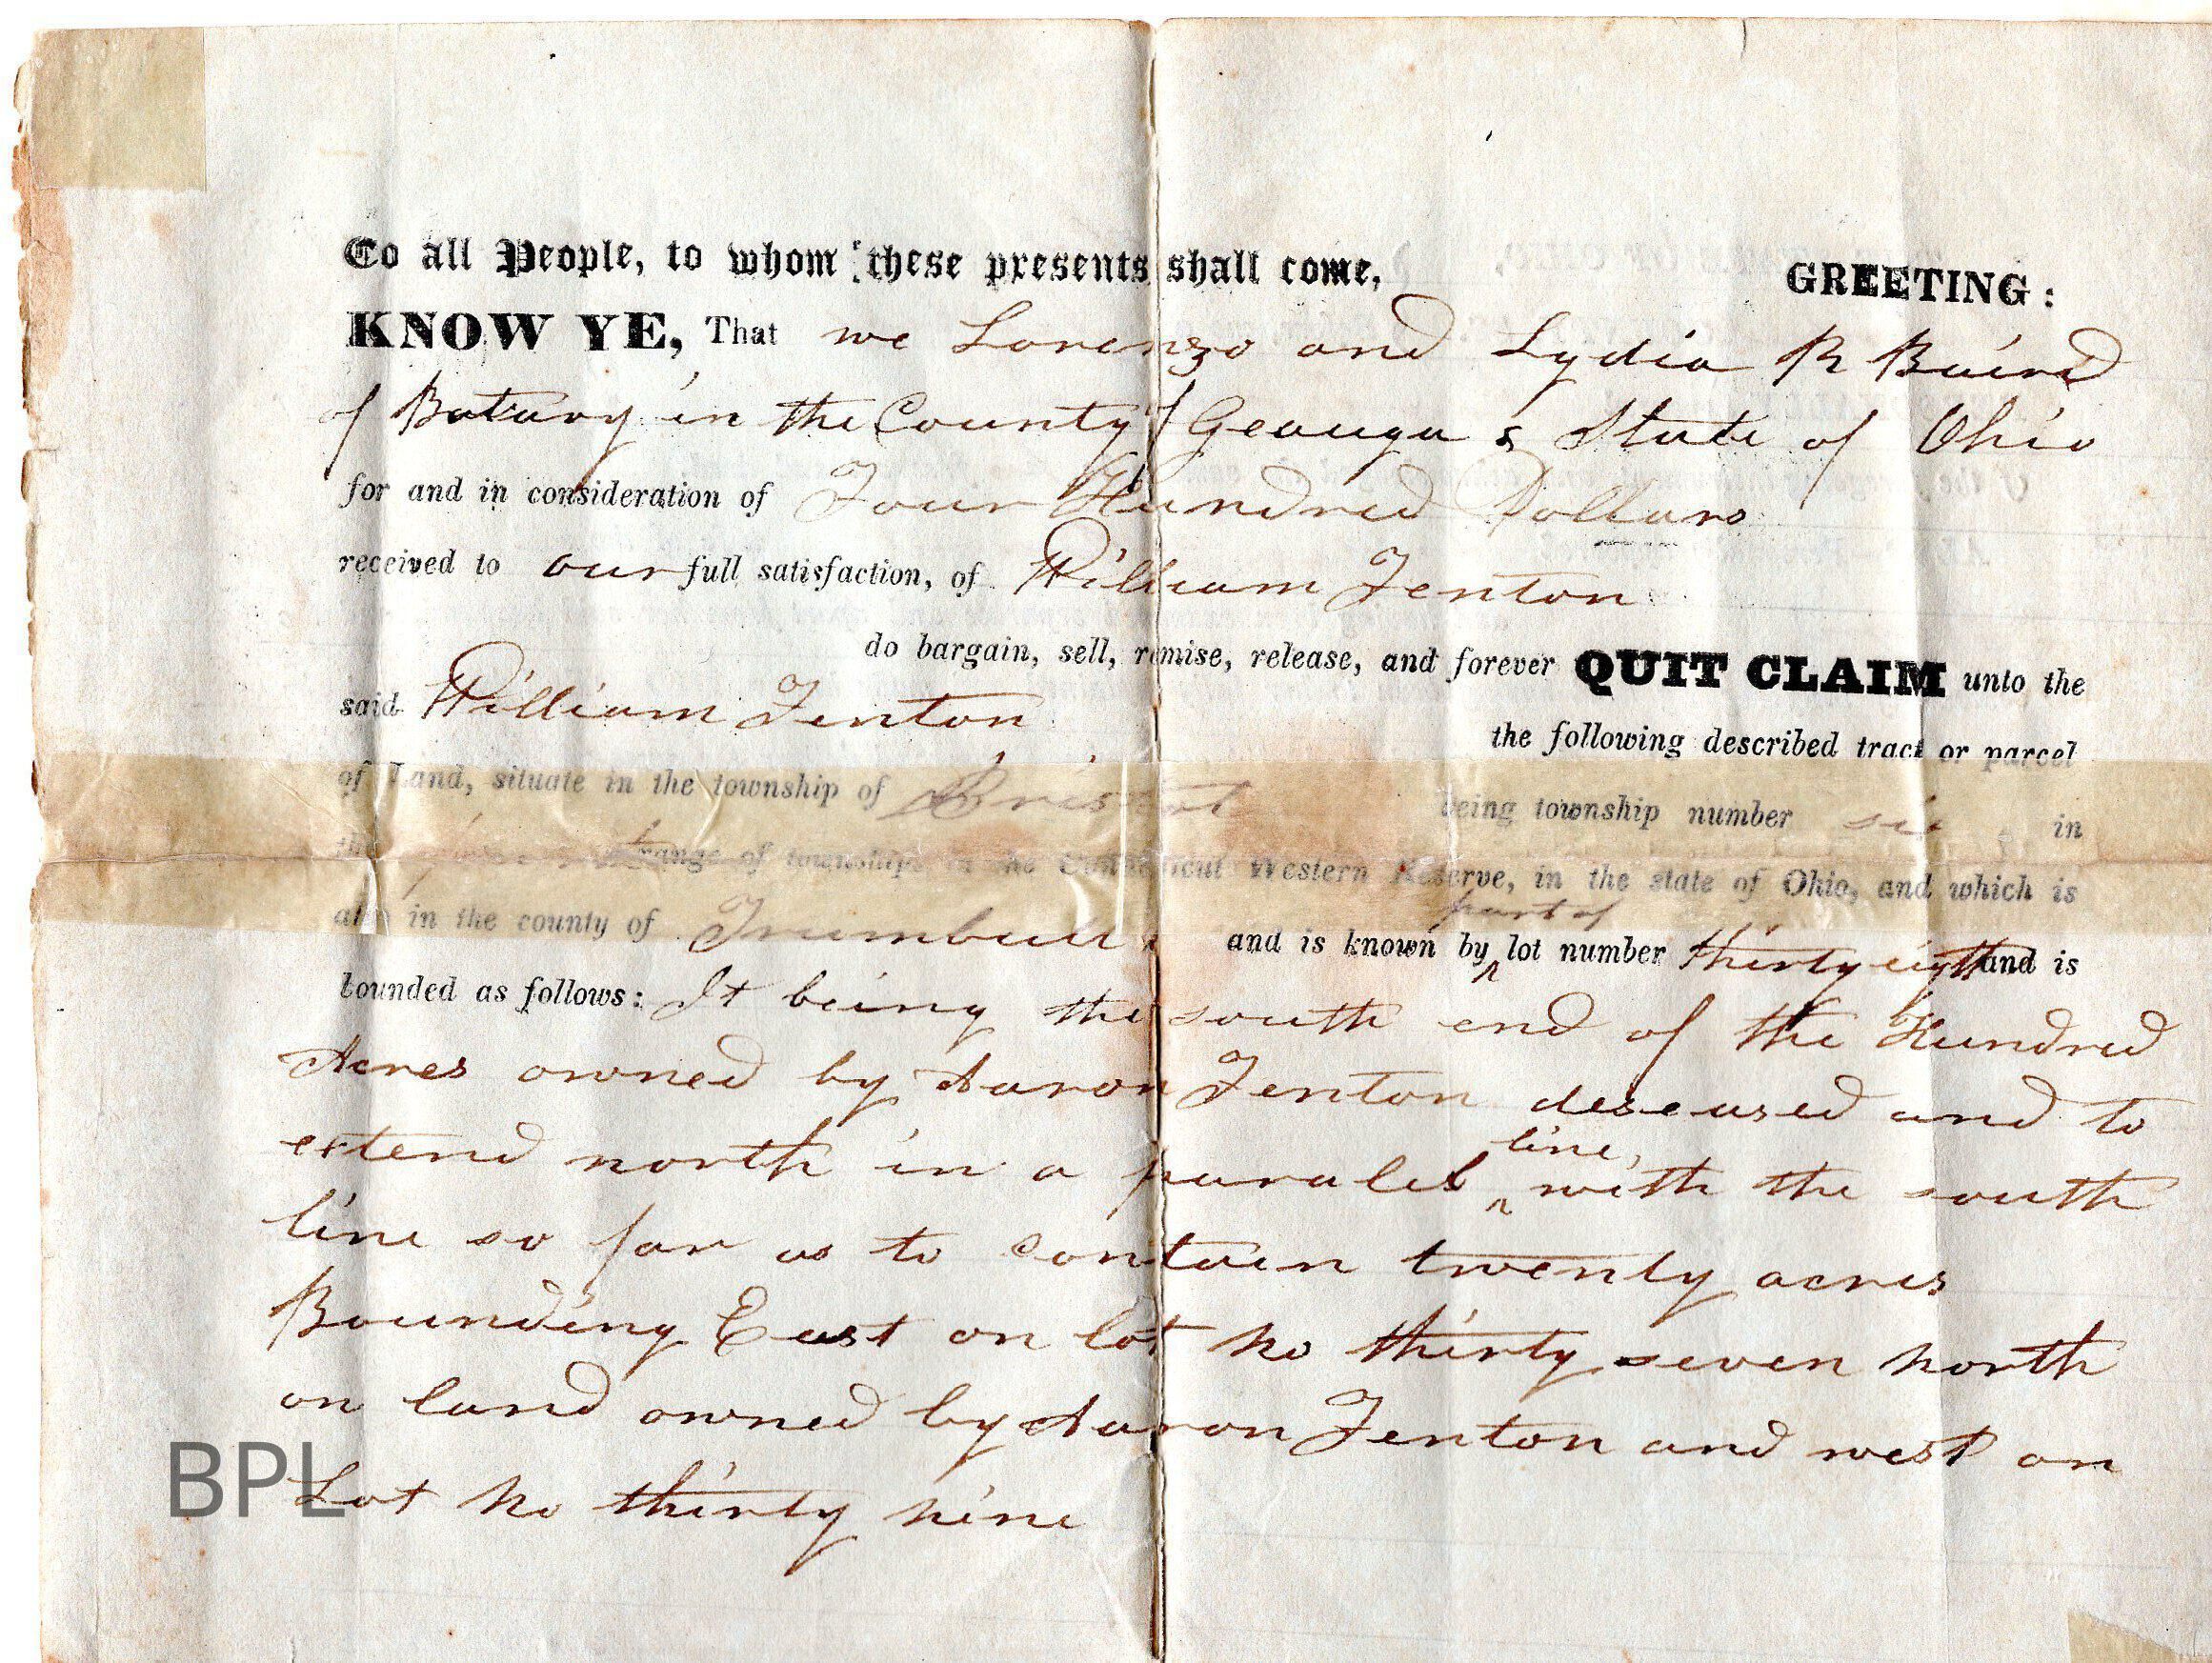 To all People, to whom these presents shall come, GREETING:
KNOW YE, That we Lorenzo and Lydia R Baird
of Batavy in the County of Geauga & State of Ohio
for and in consideration of Four Hundred Dollars
received to our full satisfaction, of William Fenton
do bargain, sell, remise, release, and forever QUIT CLAIM unto the
said William Fenton
the following described tract or parcel
of Land, situate in the township of Bristol being township number six in
the range of townships in the Connecticut Western Reserve, in the state of Ohio, and which is
also in the county of Trumbull and is known by part of lot number thirty eight and is
bounded as follows: It being the south end of the Hundred
Acres owned by Aaron Fenton deseased and to
extend north in a paralel line, with the south
line so far as to contain twenty acres
Bounding East on lot No thirty seven north
on land owned by Aaron Fenton and west on
Lot No thirty nine
BPL